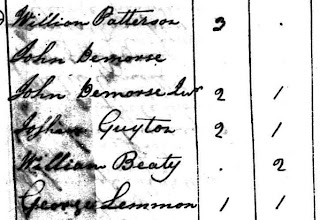 William Patterson 3 .
John Demorse
John Demorse Junr 2 1
Guyton 2 1
William Beaty . 2
George Lemmon 1 1